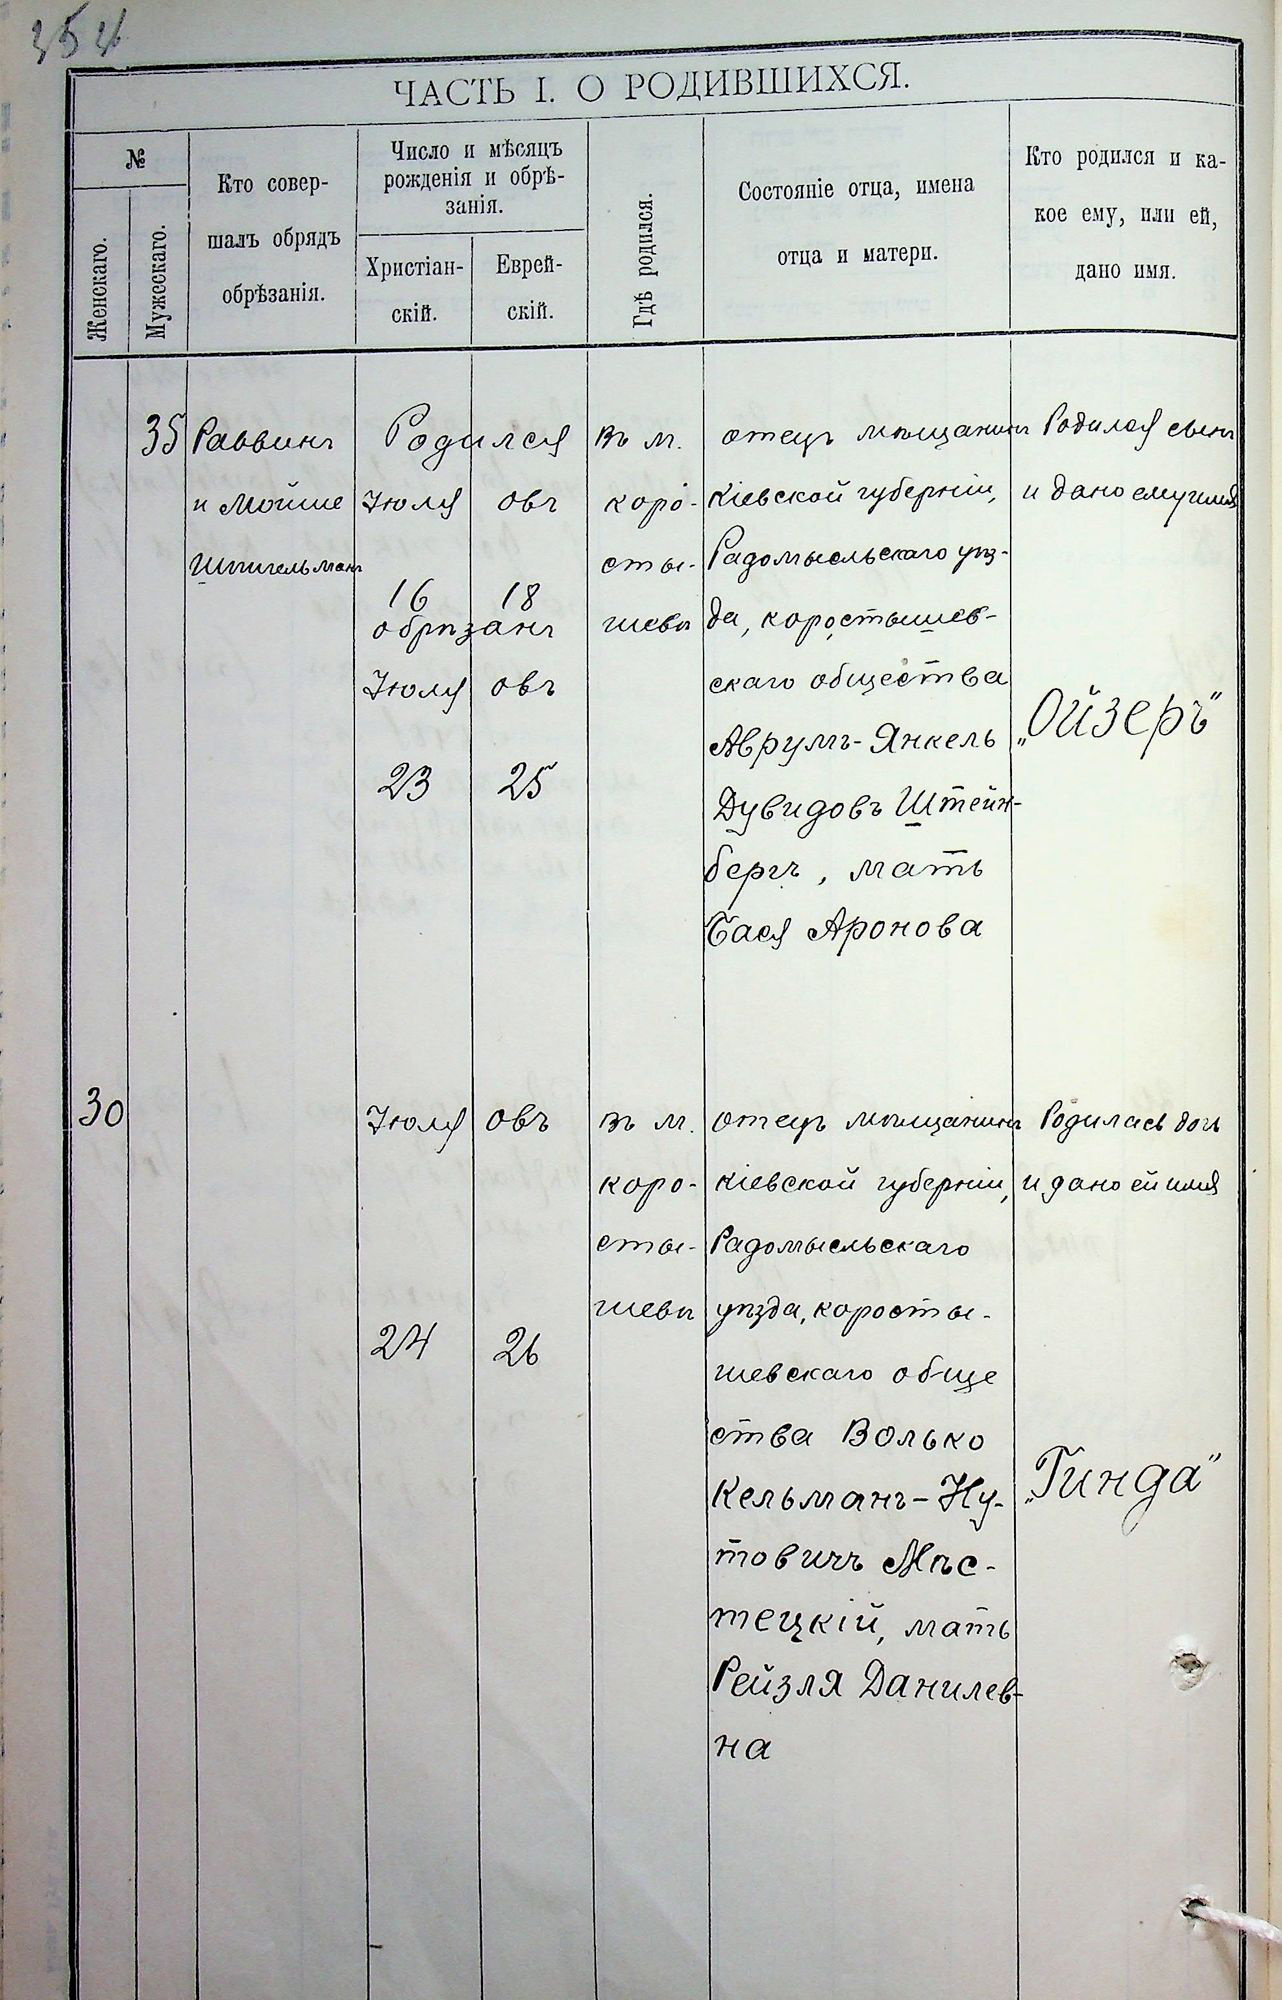 354
ЧАСТЬ I. О РОДИВШИХСЯ.
№
Женскаго.
Мужескаго.
Кто совер-
шалъ обрядъ
обрѣзанія.
Число и мѣсяцъ
рожденія и обрѣ-
занія.
Христіан-
скій.
Еврей-
скій.
Гдѣ родился.
Состояніе отца, имена
отца и матери.
Кто родился и ка-
кое ему, или ей,
дано имя.
35
Раввинъ
и Мойше
Шпигельманъ
Родился
Іюля овъ
16 18
обрѣзанъ
Іюля овъ
23 25
въ м.
коро-
сты-
шевѣ
отецъ мѣщанинъ
кіевской губерніи,
Радомысльскаго уѣз-
да, коростышев-
скаго общества
Аврумъ-Янкель
Дувидовъ Штейн-
бергъ, мать
Бася Аронова
Родился сынъ
и дано ему имя
„Ойзеръ"
30
Іюля овъ
24 26
въ м.
коро-
сты-
шевѣ
отецъ мѣщанинъ
кіевской губерніи,
Радомысльскаго
уѣзда, коросты-
шевскаго обще
ства Волько
Кельманъ-Ну-
товичъ Мѣс-
тецкій, мать
Рейзля Данилев-
на
Родилась дочь
и дано ей имя
„Гинда"